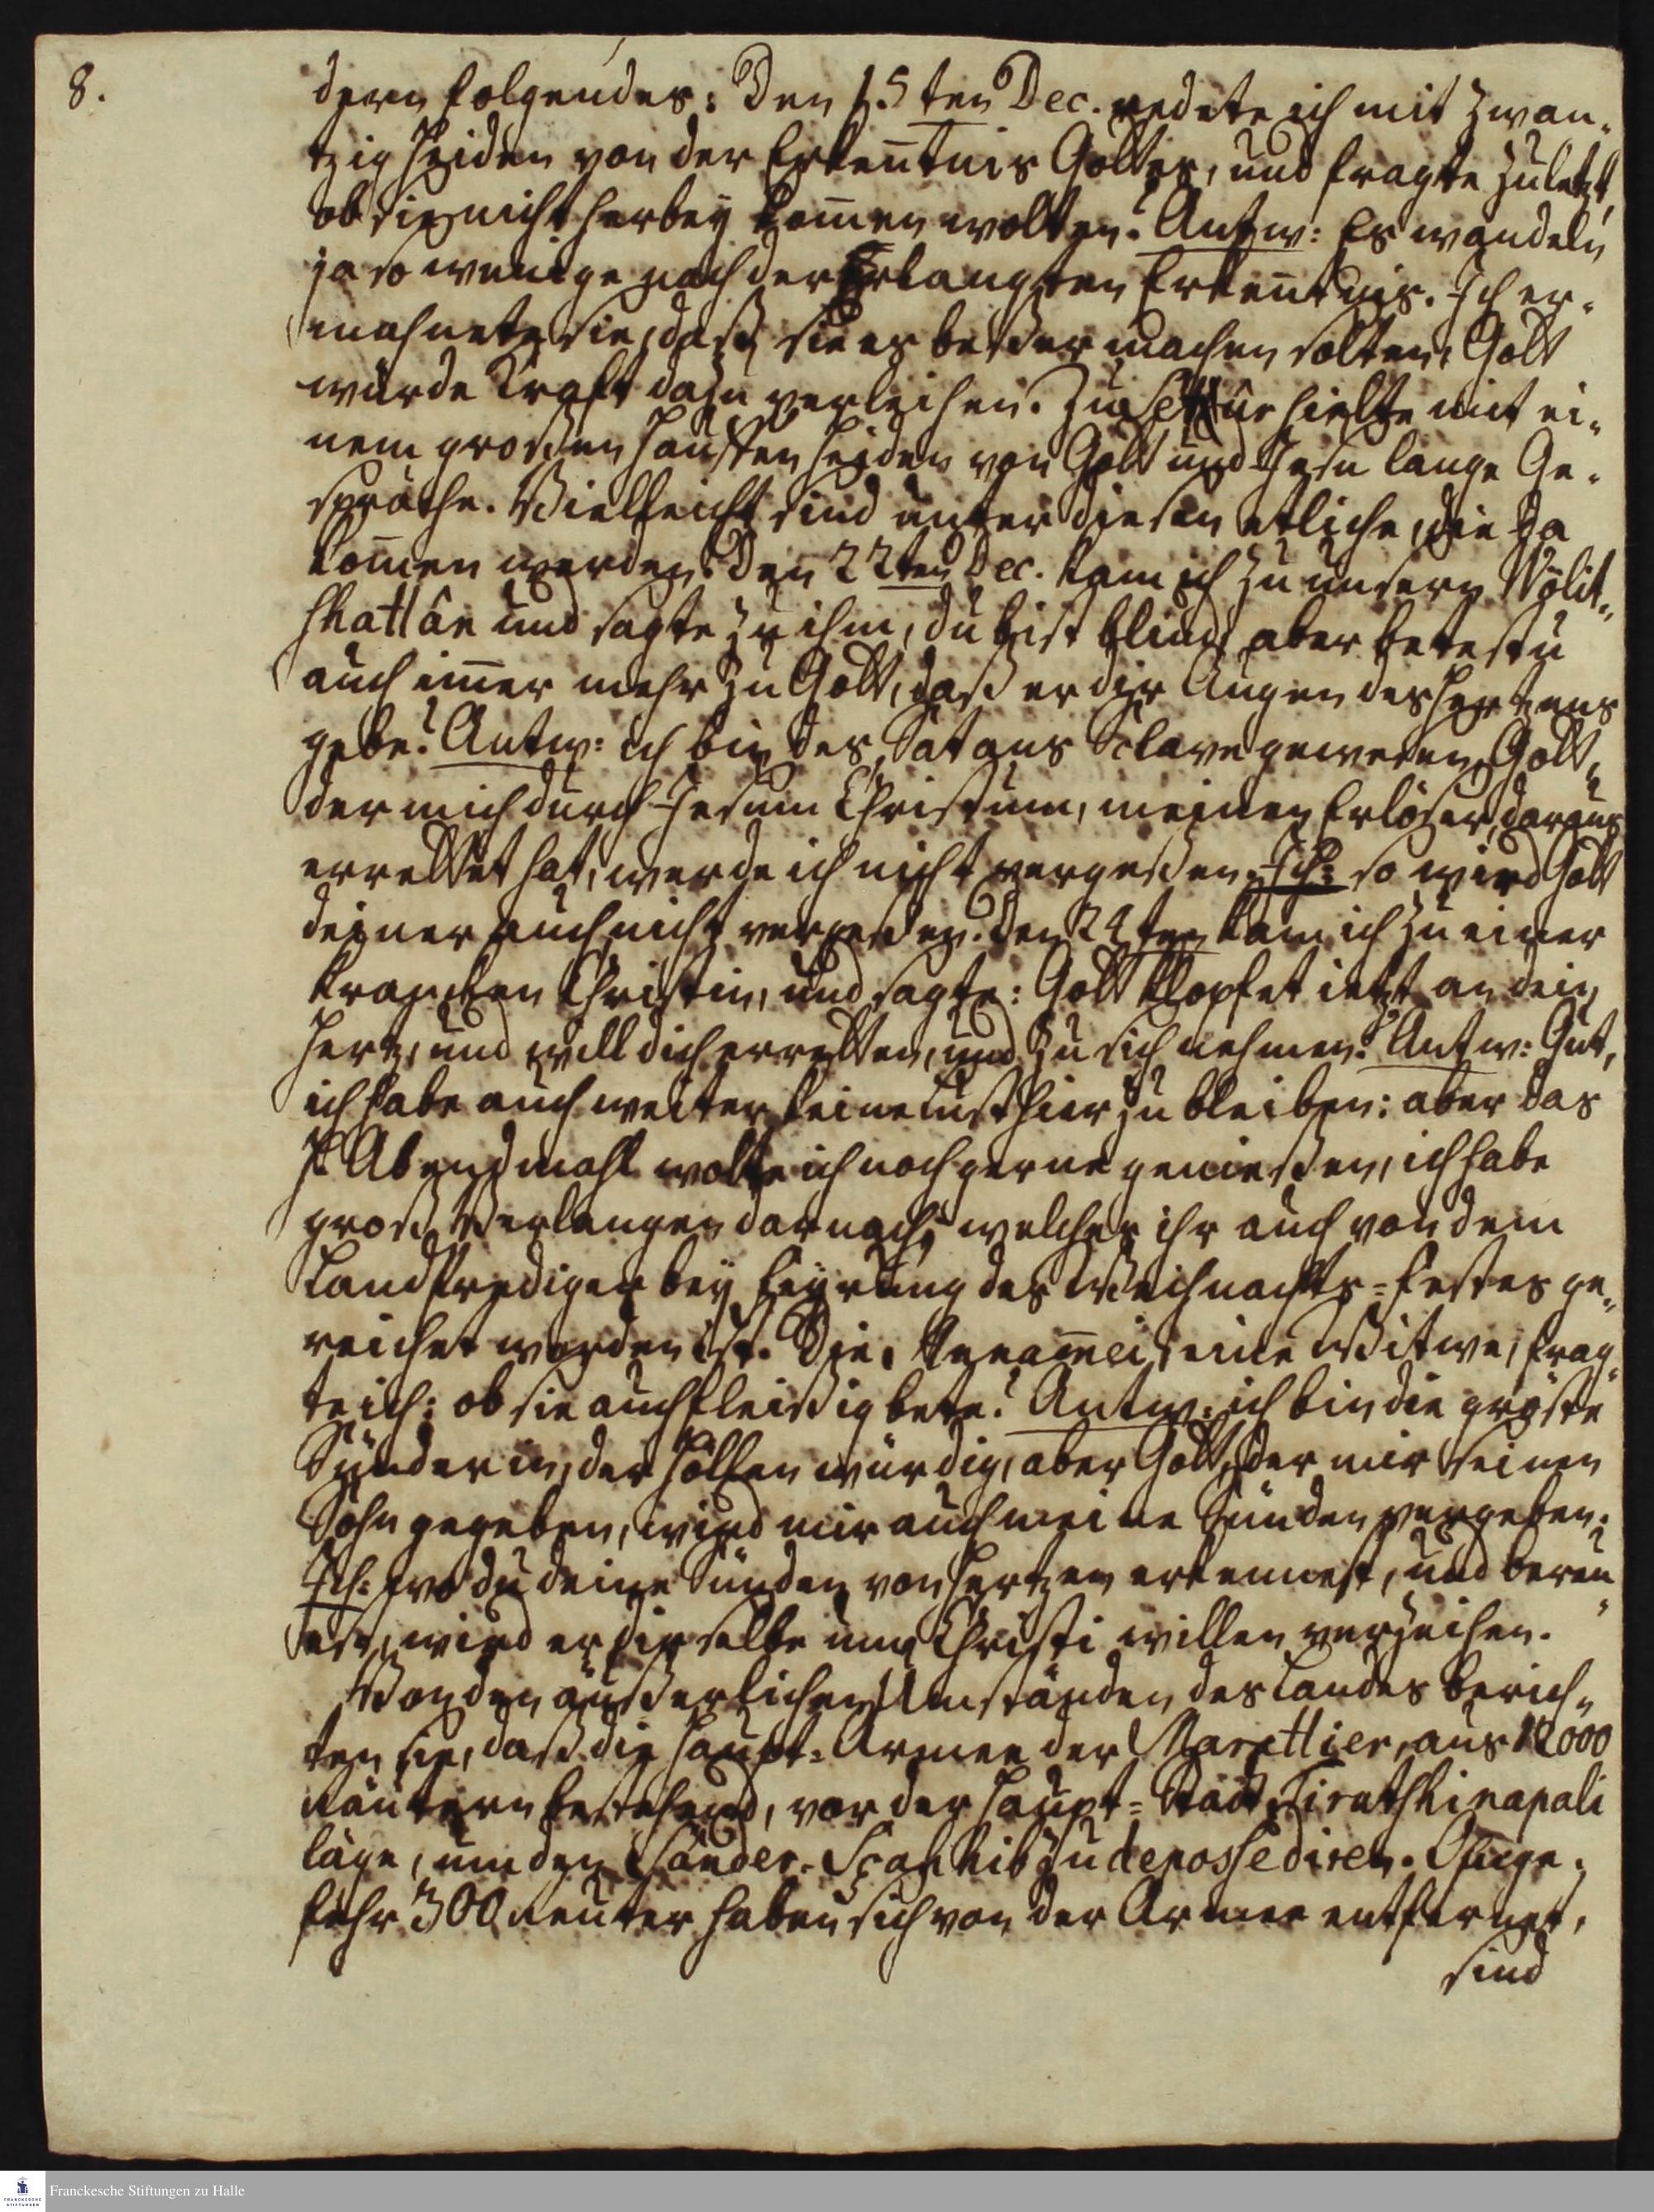 8.
dern folgendes: Den 15ten Dec. redete ich mit zwan„
tzig Heiden von der Erkentnis Gottes, und fragte zuletzt,
ob sie nicht herbey komen wolten? Antw: Es wandeln
ja so wenige nach der Erlangten Erkentnis. Ich er„
mahnete sie, daß sie es beßer machen solten, Gott
würde Kraft dazu verleihen. Zu hielte mit ei„
nem großen Hauffen Heiden von Gott und Jesu lange Ge„
spräche. Vielleicht sind unter diesen etliche, die da
komen werden. Den 22ten Dec. kam ich zu unsern Wölit„
shattân und sagte zu ihm, du bist blind, aber betestu
auch imer mehr zu Gott, daß er dir Augen des Hertzens
gebe? Antw: ich bin des Satans Sclave gewesen, Gott,
der mich durch Jesum Christum, meinen Erlöser, daraus
errettet hat, werde ich nicht vergeßen. Ich: so wird Gott
deiner auch nicht vergeßen. Den 24ten kam ich zu einer
krancken Christin, und sagte: Gott klopfet ietzt an dein
Hertz, und will dich erretten, und zu sich nehmen? Antw: Gut,
ich habe auch weiter keine Lust hier zu bleiben: aber das
H. Abendmahl wolte ich noch gerne genießen, ich habe
groß Verlangen darnach; welches ihr auch von dem
Landprediger bey Feyrung des Weihnachts=Festes ge„
reichet worden ist. Die Annamei, eine Witwe, frag„
te ich: ob sie auch fleißig bete? Antw: ich bin die gröste
Sünderin, der Höllen würdig, aber Gott, der mir seinen
Sohn gegeben, wird mir auch meine Sünden vergeben.
Ich: wo du deine Sünden von Hertzen erkennest, und bereu„
est, wird er dir selbe um Christi willen verzeihen.
Von den äußerlichen Umständen des Landes berich„
ten sie, daß die Haupt=Armee der Marattier, aus
Räutern bestehend, vor der Haupt=Stadt Tirutshinapali
läge, um den Sander=Scahib zu depossediren. Ohnge„
fehr 300 Reuter haben sich von der Armee entfernet,
sind
Franckesche Stiftungen zu Halle
FRANCKESCHE
STIFTUNGEN